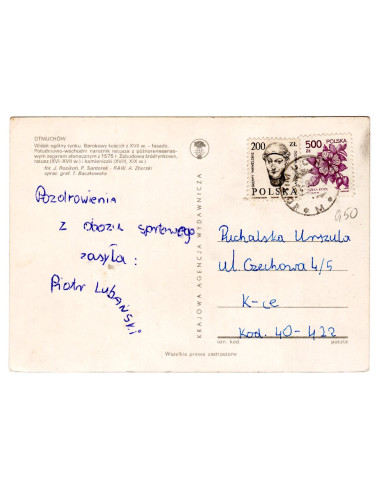 OTMUCHÓW
Widok ogólny rynku. Barokowy kościół z XVII w. – fasada.
Południowo-wschodni narożnik ratusza z późnorenesansowym zegarem słonecznym z 1575 r. Zabudowa śródrynkowa,
ratusz (XVI–XVII w.) i kamieniczki (XVIII, XIX w.)
fot. J.
oprac. graf. T.
KRAJOWA AGENCJA WYDAWNICZA
200 ZŁ
POLSKA
POLSKA
500 zł
950
Pozdrowienia
z obozu sportowego
zasyła:
Piotr Lubański
Puchalska Urszula
ul. Czechowa 4/5
K-ce
Kod. 40-422
kod
poczta
Wszelkie prawa zastrzeżone